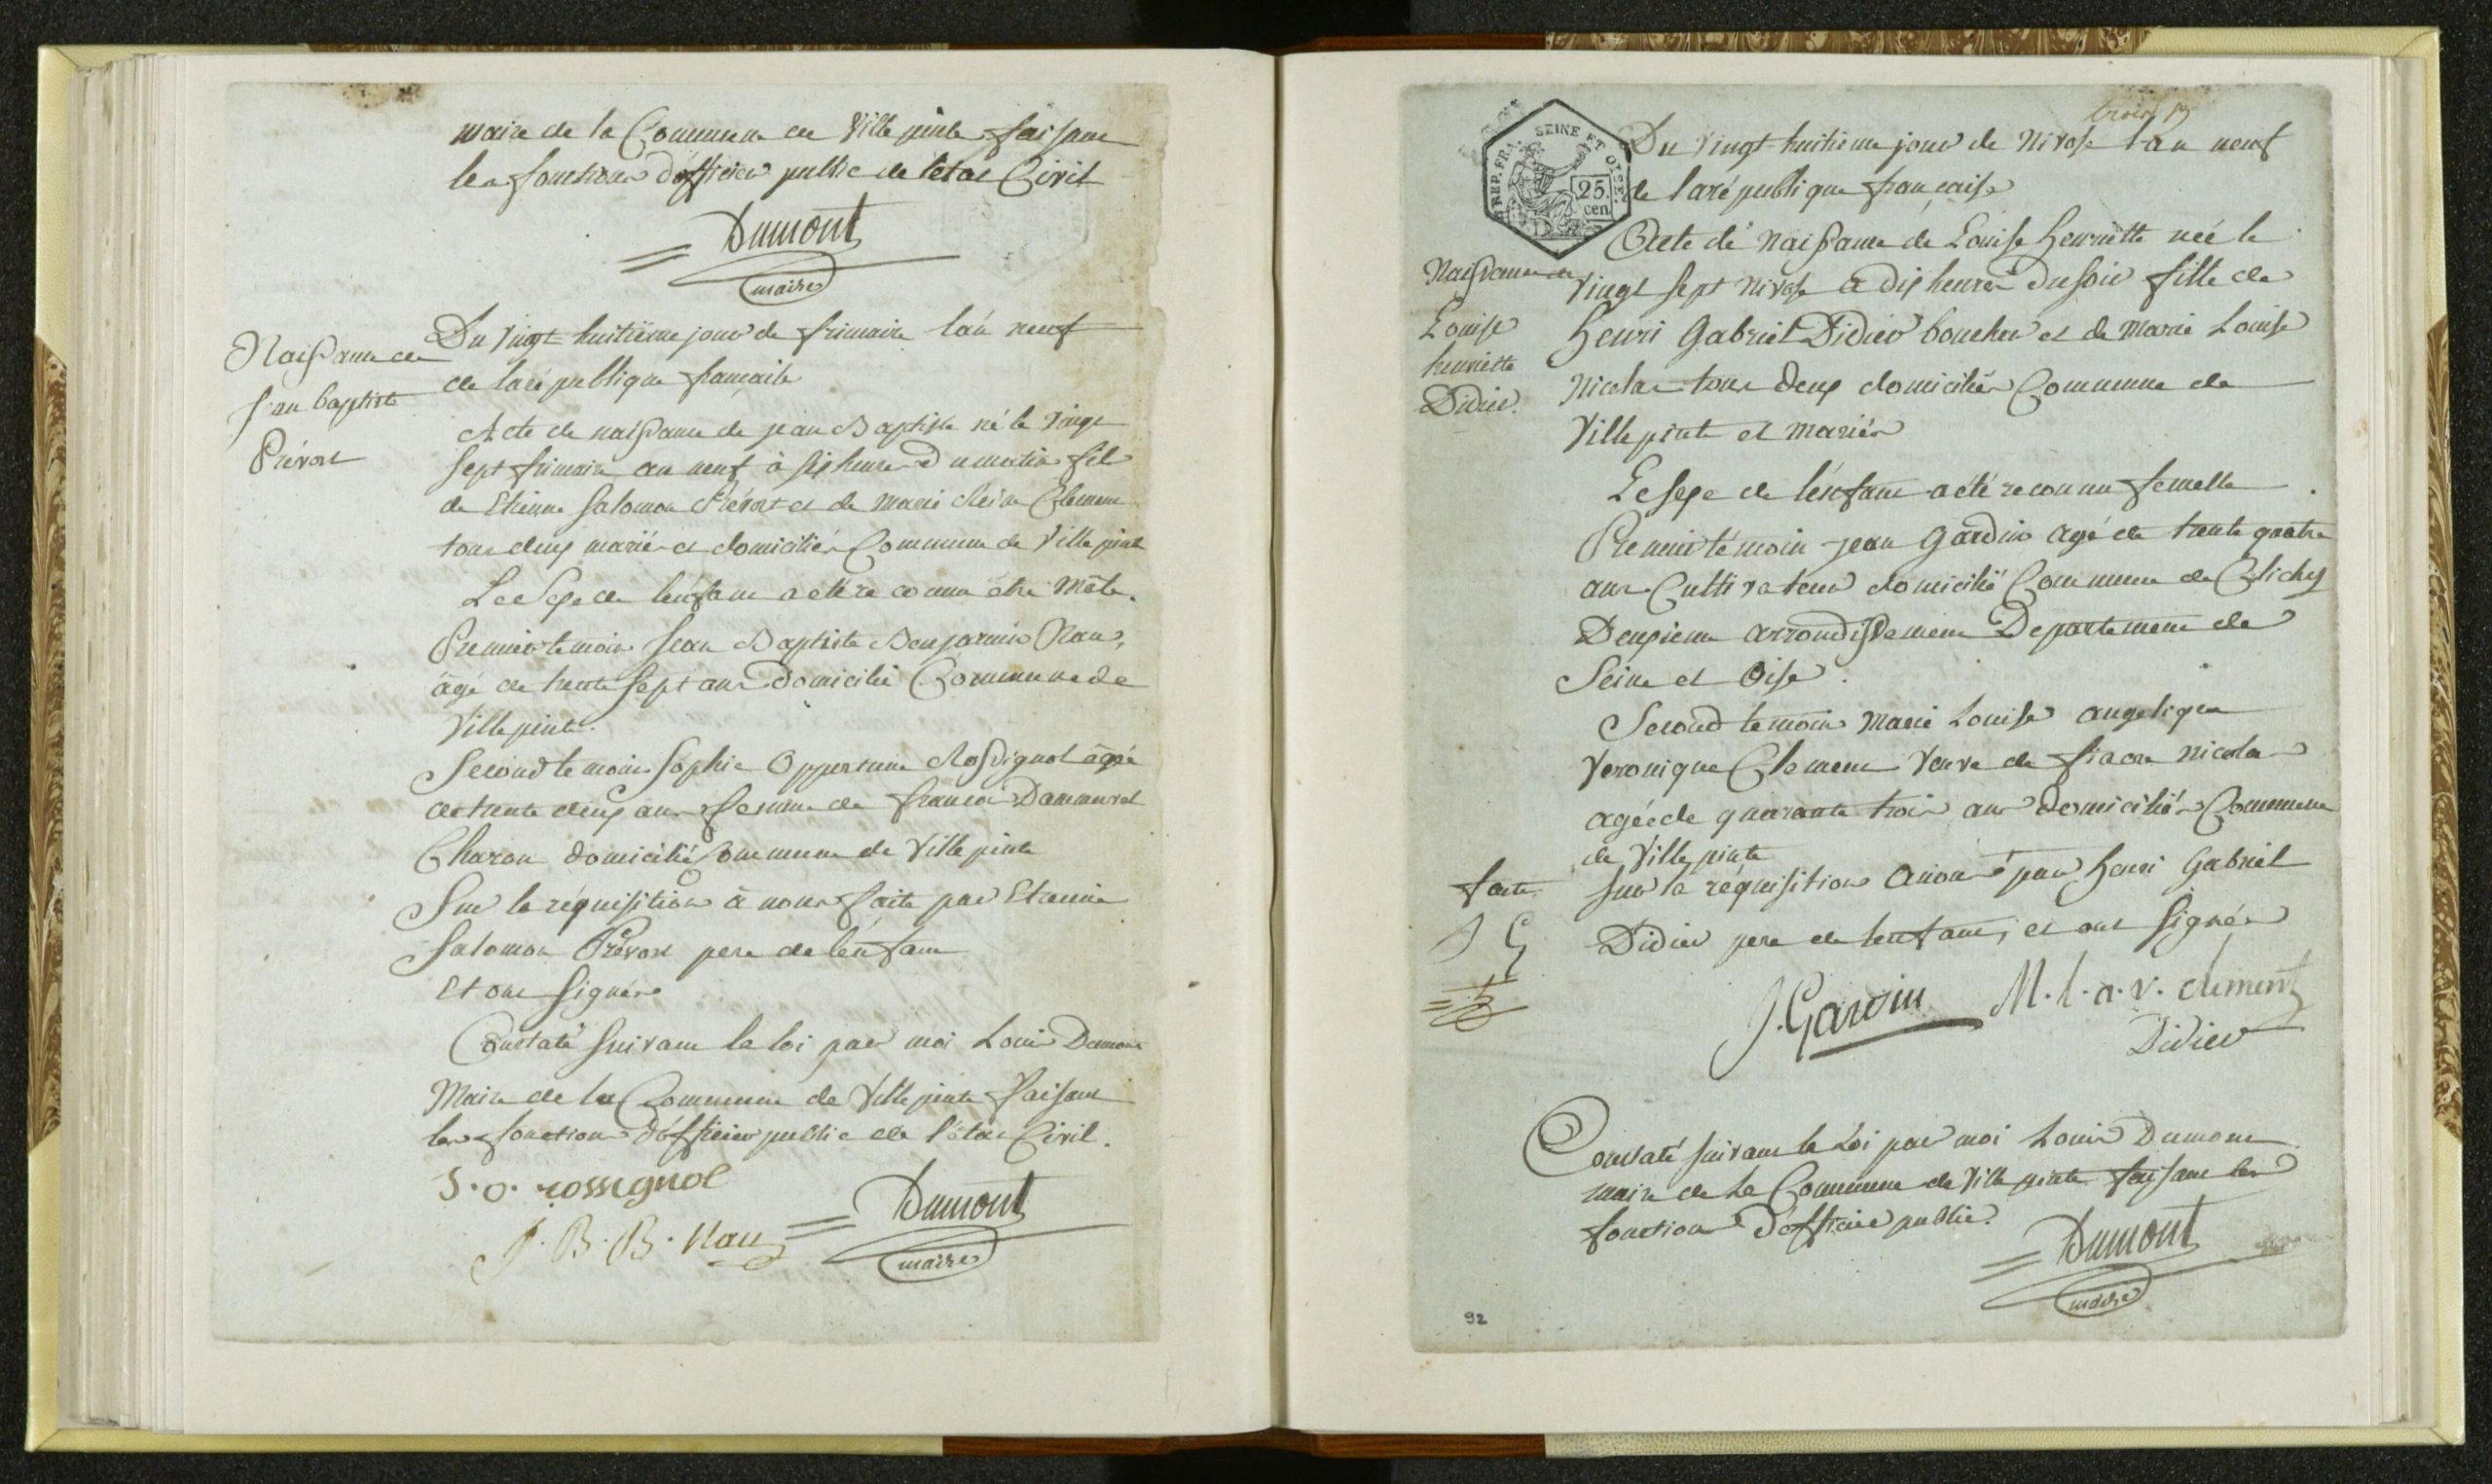 maire de la Commune de Ville pinte faisant
les fonctions d'officier public de letat Civil
Dumont
maire
Naissance de
jean baptiste
Prévost
Du vingt huitième jour de frimaire l'an neuf
de la république francaise
Acte de naissance de jean Baptiste né le vingt
sept frimaire an neuf à six heures du matin fils
de Etienne Salomon Prévost et de marie Reine Clement
tous deux mariés et domiciliés Commune de Ville pinte
Le Sexe de lenfant a été reconnu être Mâle.
Premier temoin Jean Baptiste Benjamin Nau,
âgé de trente sept ans domicilié Commune de
Ville pinte.
Second temoin Sophie Opportune Rossignol âgée
de trente deux ans femme de francois Dammuret
Charon domicilié Commune de Ville pinte
Sur la réquisition à nous faite par Etienne
Salomon Prévost pere de lenfant
Et ont signés
Constaté suivant la loi par moi Louis Dumont
Maire de la Commune de Ville pinte faisant
les fonctions d'officier public de l'état Civil.
S. o. rossignol
J. B. B. Nau
Dumont
maire
REP. FRA. SEINE ET OISE.
25
cen
Du vingt huitieme jour de Nivose l'an neuf
de la république francaise
Acte de naissance de Louise henriette née le
Naissance de
Louise
henriette
Didier.
vingt sept nivose a dix heures du soir fille de
henri Gabriel Didier boucher et de Marie Louise
Nicolas tous deux domiciliés Commune de
Ville pinte et mariés
Le sexe de l'enfant a été reconnu femelle.
Premier témoin jean Gardin agé de trente quatre
ans Cultivateur domicilié Commune de Clichy
Deuxieme arrondissement Departement de
Seine et Oise.
Second temoin Marie Louise angelique
Veronique Clement Veuve de fiacre nicolas
agée de quarante trois ans domiciliés Commune
de Ville pinte
faite
J G
sur la réquisition a nous par henri Gabriel
Didier pere de lenfant, et ont signés
J. Gardin M. l. a. v. clement
Didier
Constaté suivant la Loi par moi Louis Dumont
maire de la Commune de Ville pinte faisant les
fonctions d'officier public.
Dumont
maire
92